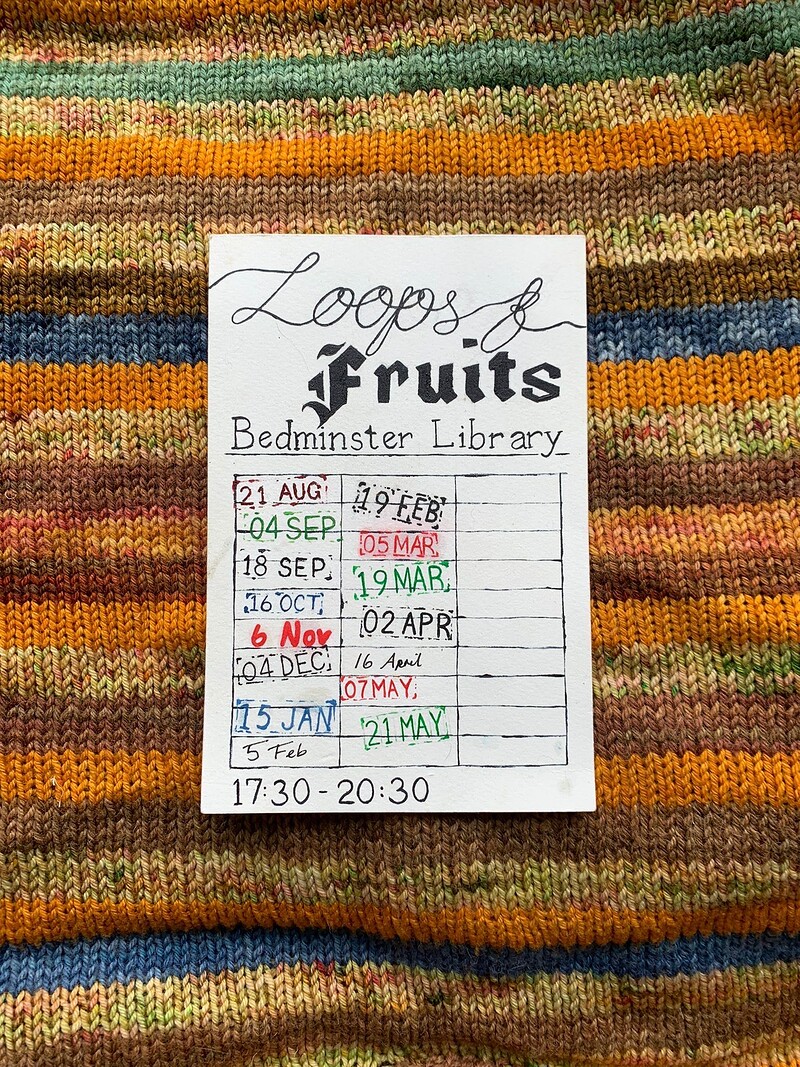 Loops &
Fruits
Bedminster Library
21 AUG
04 SEP
18 SEP
16 OCT
6 Nov
04 DEC
15 JAN
5 Feb
19 FEB
05 MAR
19 MAR
02 APR
16 April
07 MAY
21 MAY
17:30 - 20:30